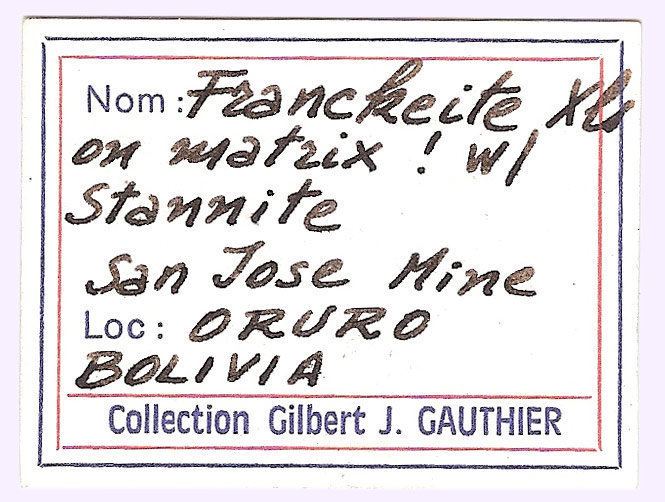 Nom: Franckeite Xls
on matrix ! w/
Stannite
San Jose Mine
Loc: ORURO
BOLIVIA
Collection Gilbert J. GAUTHIER